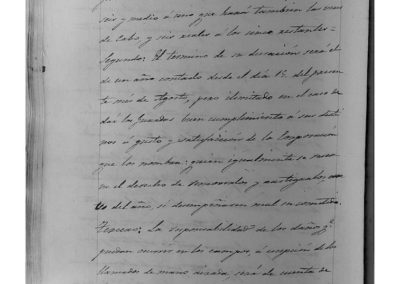 seis y medio á uno que hará tambien las veces
de Cabo, y seis reales á los cinco restantes –
Segundo: El termino de su duración será el
de un año contado desde el dia 15 del presen
te mes de Agosto, pero ilimitado en el caso de
dar los Guardas buen cumplimiento á sus desti
nos á gusto y satisfacción de la Corporacion
que los nombra: quien igualmente se reser
va el derecho de removerlos y
del año, si desempeñaren mal su cometido.
Tercero: La responsabilidad de los daños q.e
puedan ocurrir en los campos, á escepcion de los
llamados de mano airada, será de cuenta de